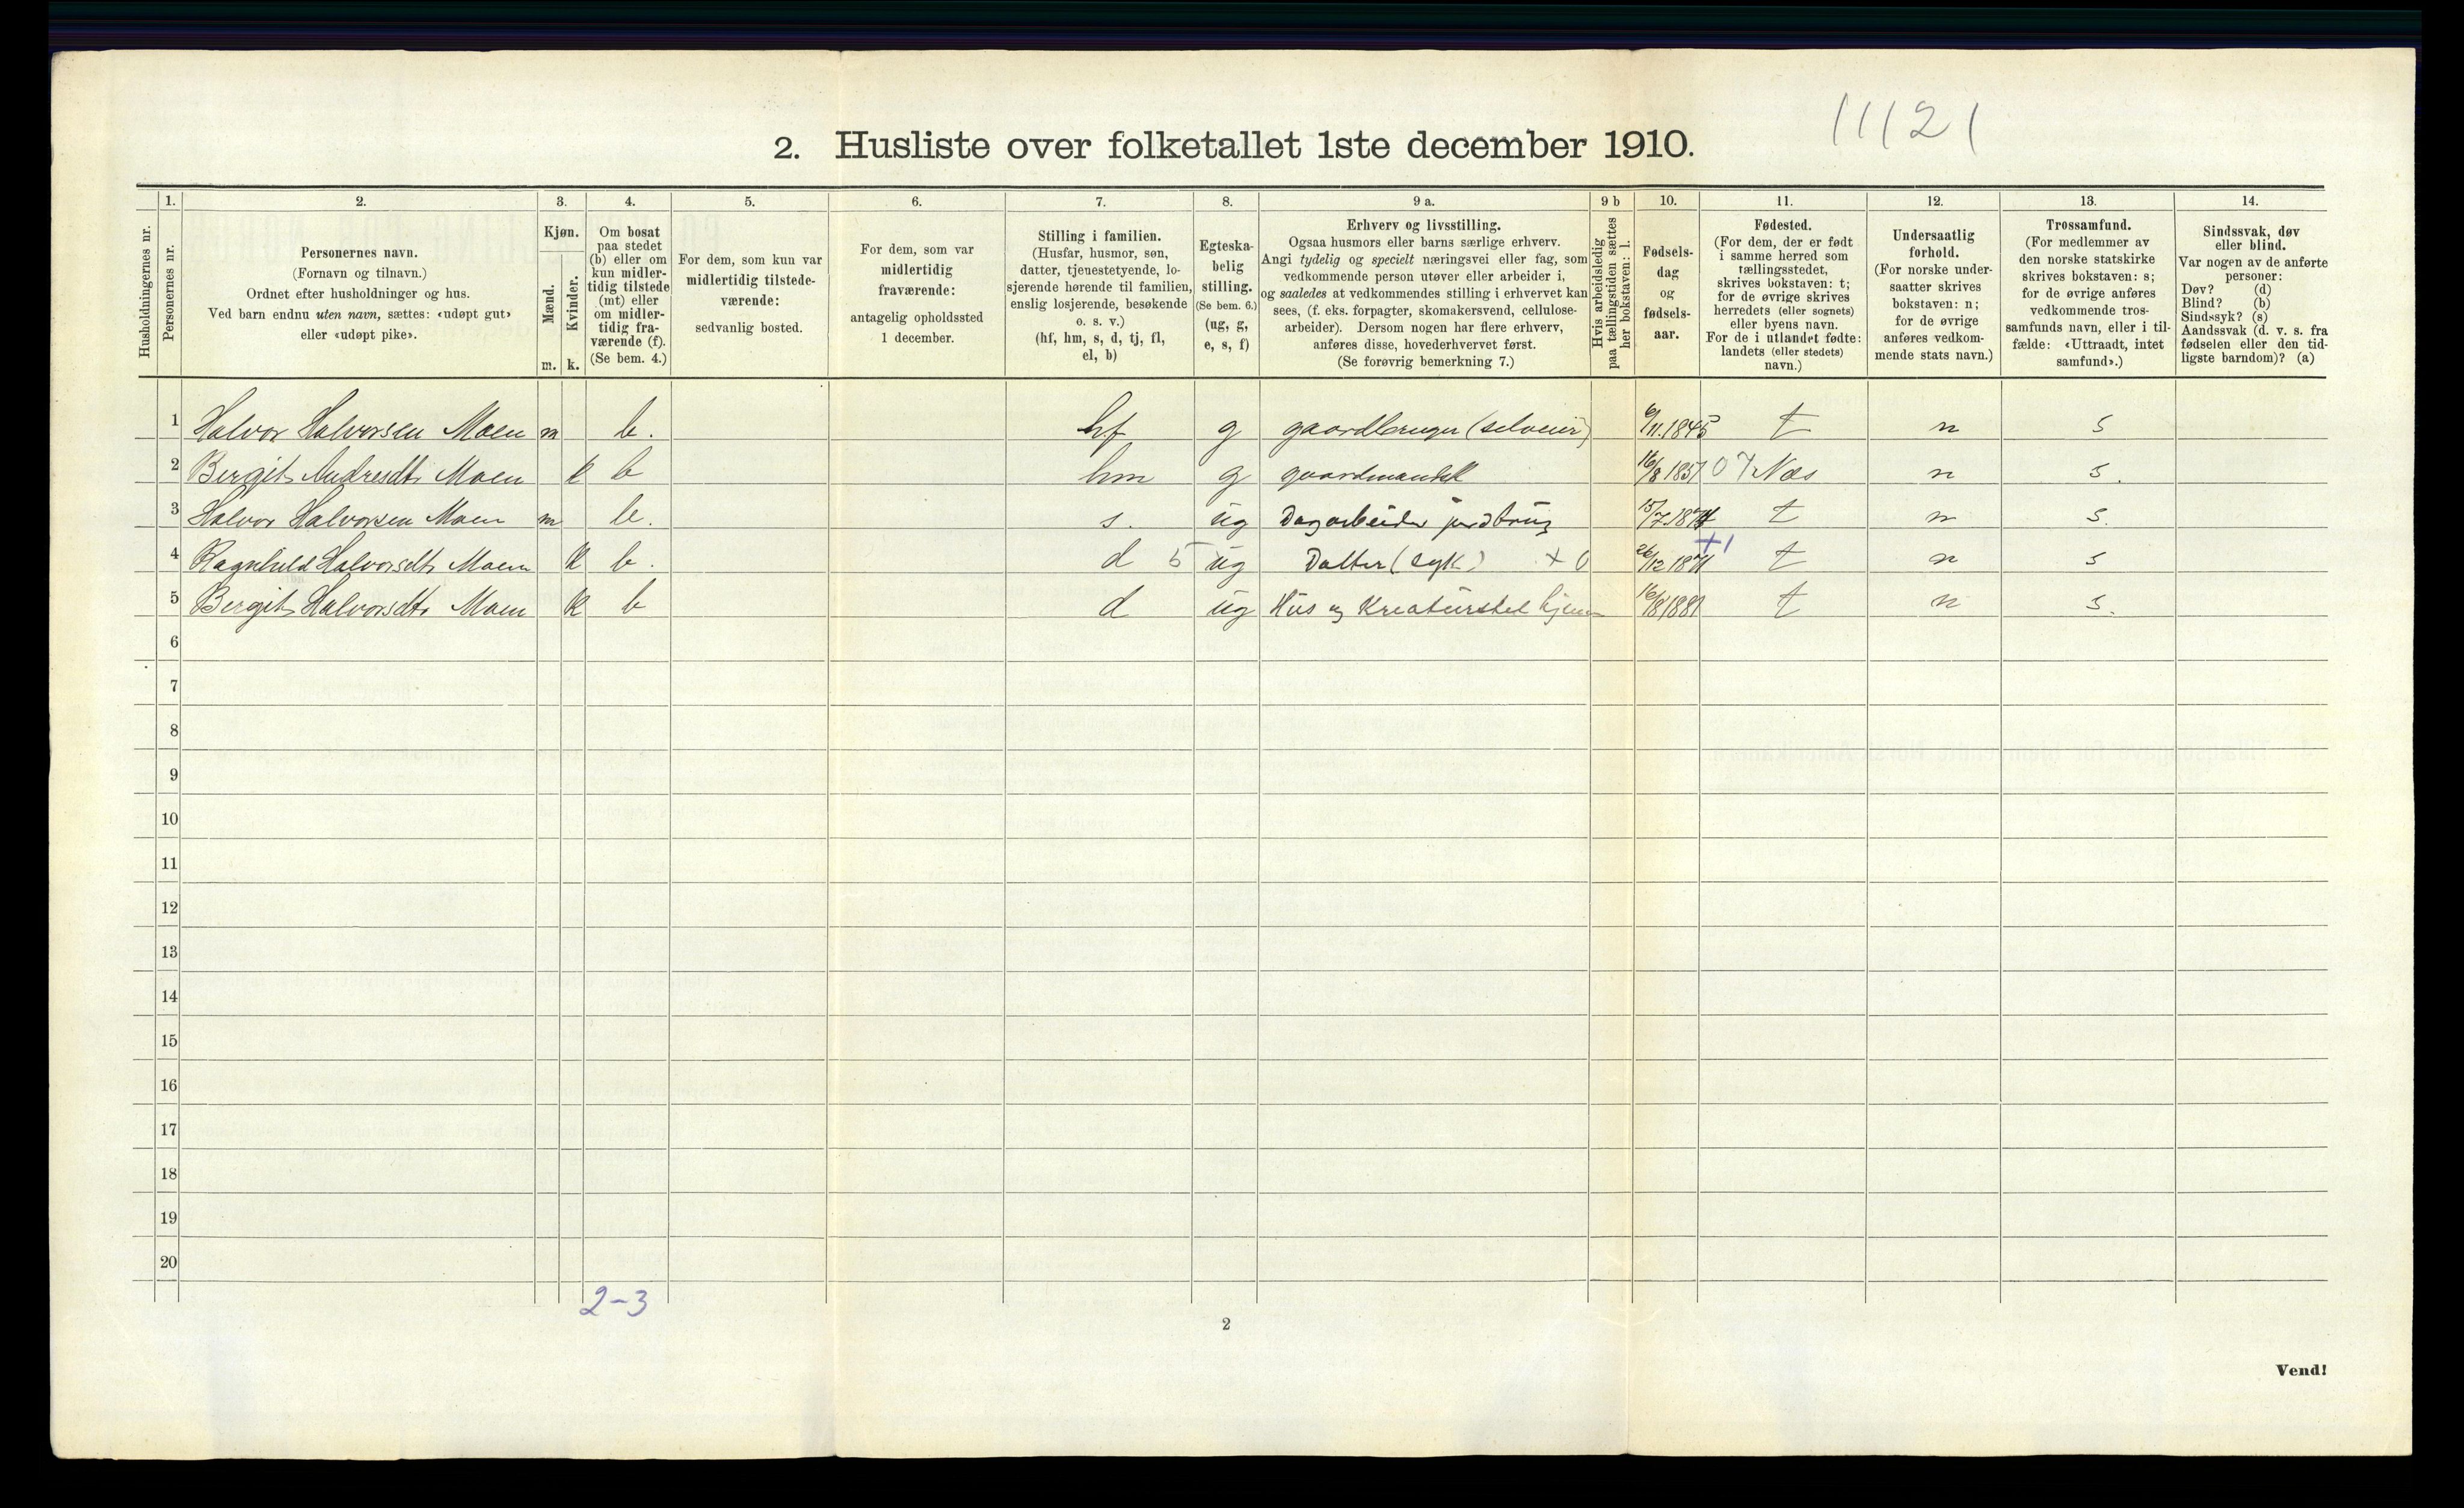 11121
2. Husliste over folketallet 1ste december 1910.
Husholdningernes nr.
1.
Personernes nr.
2.
Personernes navn.
(Fornavn og tilnavn.)
Ordnet efter husholdninger og hus.
Ved barn endnu uten navn, sættes: «udøpt gut»
eller «udøpt pike».
3.
Kjøn.
Mænd.
Kvinder.
m. k.
4.
Om bosat
paa stedet
(b) eller om
kun midler-
tidig tilstede
(mt) eller
om midler-
tidig fra-
værende (f).
(Se bem. 4.)
5.
For dem, som kun var
midlertidig tilstede-
værende:
sedvanlig bosted.
6.
For dem, som var
midlertidig
fraværende:
antagelig opholdssted
1 december.
7.
Stilling i familien.
(Husfar, husmor, søn,
datter, tjenestetyende, lo-
sjerende hørende til familien,
enslig losjerende, besøkende
o. s. v.)
(hf, hm, s, d, tj, fl,
el, b)
8.
Egteska-
belig
stilling.
(Se bem. 6.)
(ug, g,
e, s, f)
9 a.
Erhverv og livsstilling.
Ogsaa husmors eller barns særlige erhverv.
Angi tydelig og specielt næringsvei eller fag, som
vedkommende person utøver eller arbeider i,
og saaledes at vedkommendes stilling i erhvervet kan
sees, (f. eks. forpagter, skomakersvend, cellulose-
arbeider). Dersom nogen har flere erhverv,
anføres disse, hovederhvervet først.
(Se forøvrig bemerkning 7.)
9 b
Hvis arbeidsledig
paa tællingstiden sættes
her bokstaven: l.
10.
Fødsels-
dag
og
fødsels-
aar.
11.
Fødested.
(For dem, der er født
i samme herred som
tællingsstedet,
skrives bokstaven: t;
for de øvrige skrives
herredets (eller sognets)
eller byens navn.
For de i utlandet fødte:
landets (eller stedets)
navn.)
12.
Undersaatlig
forhold.
(For norske under-
saatter skrives
bokstaven: n;
for de øvrige
anføres vedkom-
mende stats navn.)
13.
Trossamfund.
(For medlemmer av
den norske statskirke
skrives bokstaven: s;
for de øvrige anføres
vedkommende tros-
samfunds navn, eller i til-
fælde: «Uttraadt, intet
samfund».)
14.
Sindssvak, døv
eller blind.
Var nogen av de anførte
personer:
Døv? (d)
Blind? (b)
Sindssyk? (s)
Aandssvak (d. v. s. fra
fødselen eller den tid-
ligste barndom)? (a)
1 Halvor Halvorsen Moen m b. hf g gaardbruger (selveier) 6/11.1845 t n s
2 Bergit Andresdt. Moen k b hm g 16/8 1851 07 Næs n s.
3 Halvor Halvorsen Moen m b. s. ug Dagarbeider jordbrug 15/7.1874 t n s.
4 Ragnhild Halvorsdt. Moen k b. d 5 ug Datter (syk) + 0 26/12 1871 +1 t n s
5 Bergit Halvorsdt. Moen k b d ug Hus og Kreaturstel hjem 16/8 1881 t n s.
6
7
8
9
10
11
12
13
14
15
16
17
18
19
20
2-3
2
Vend!